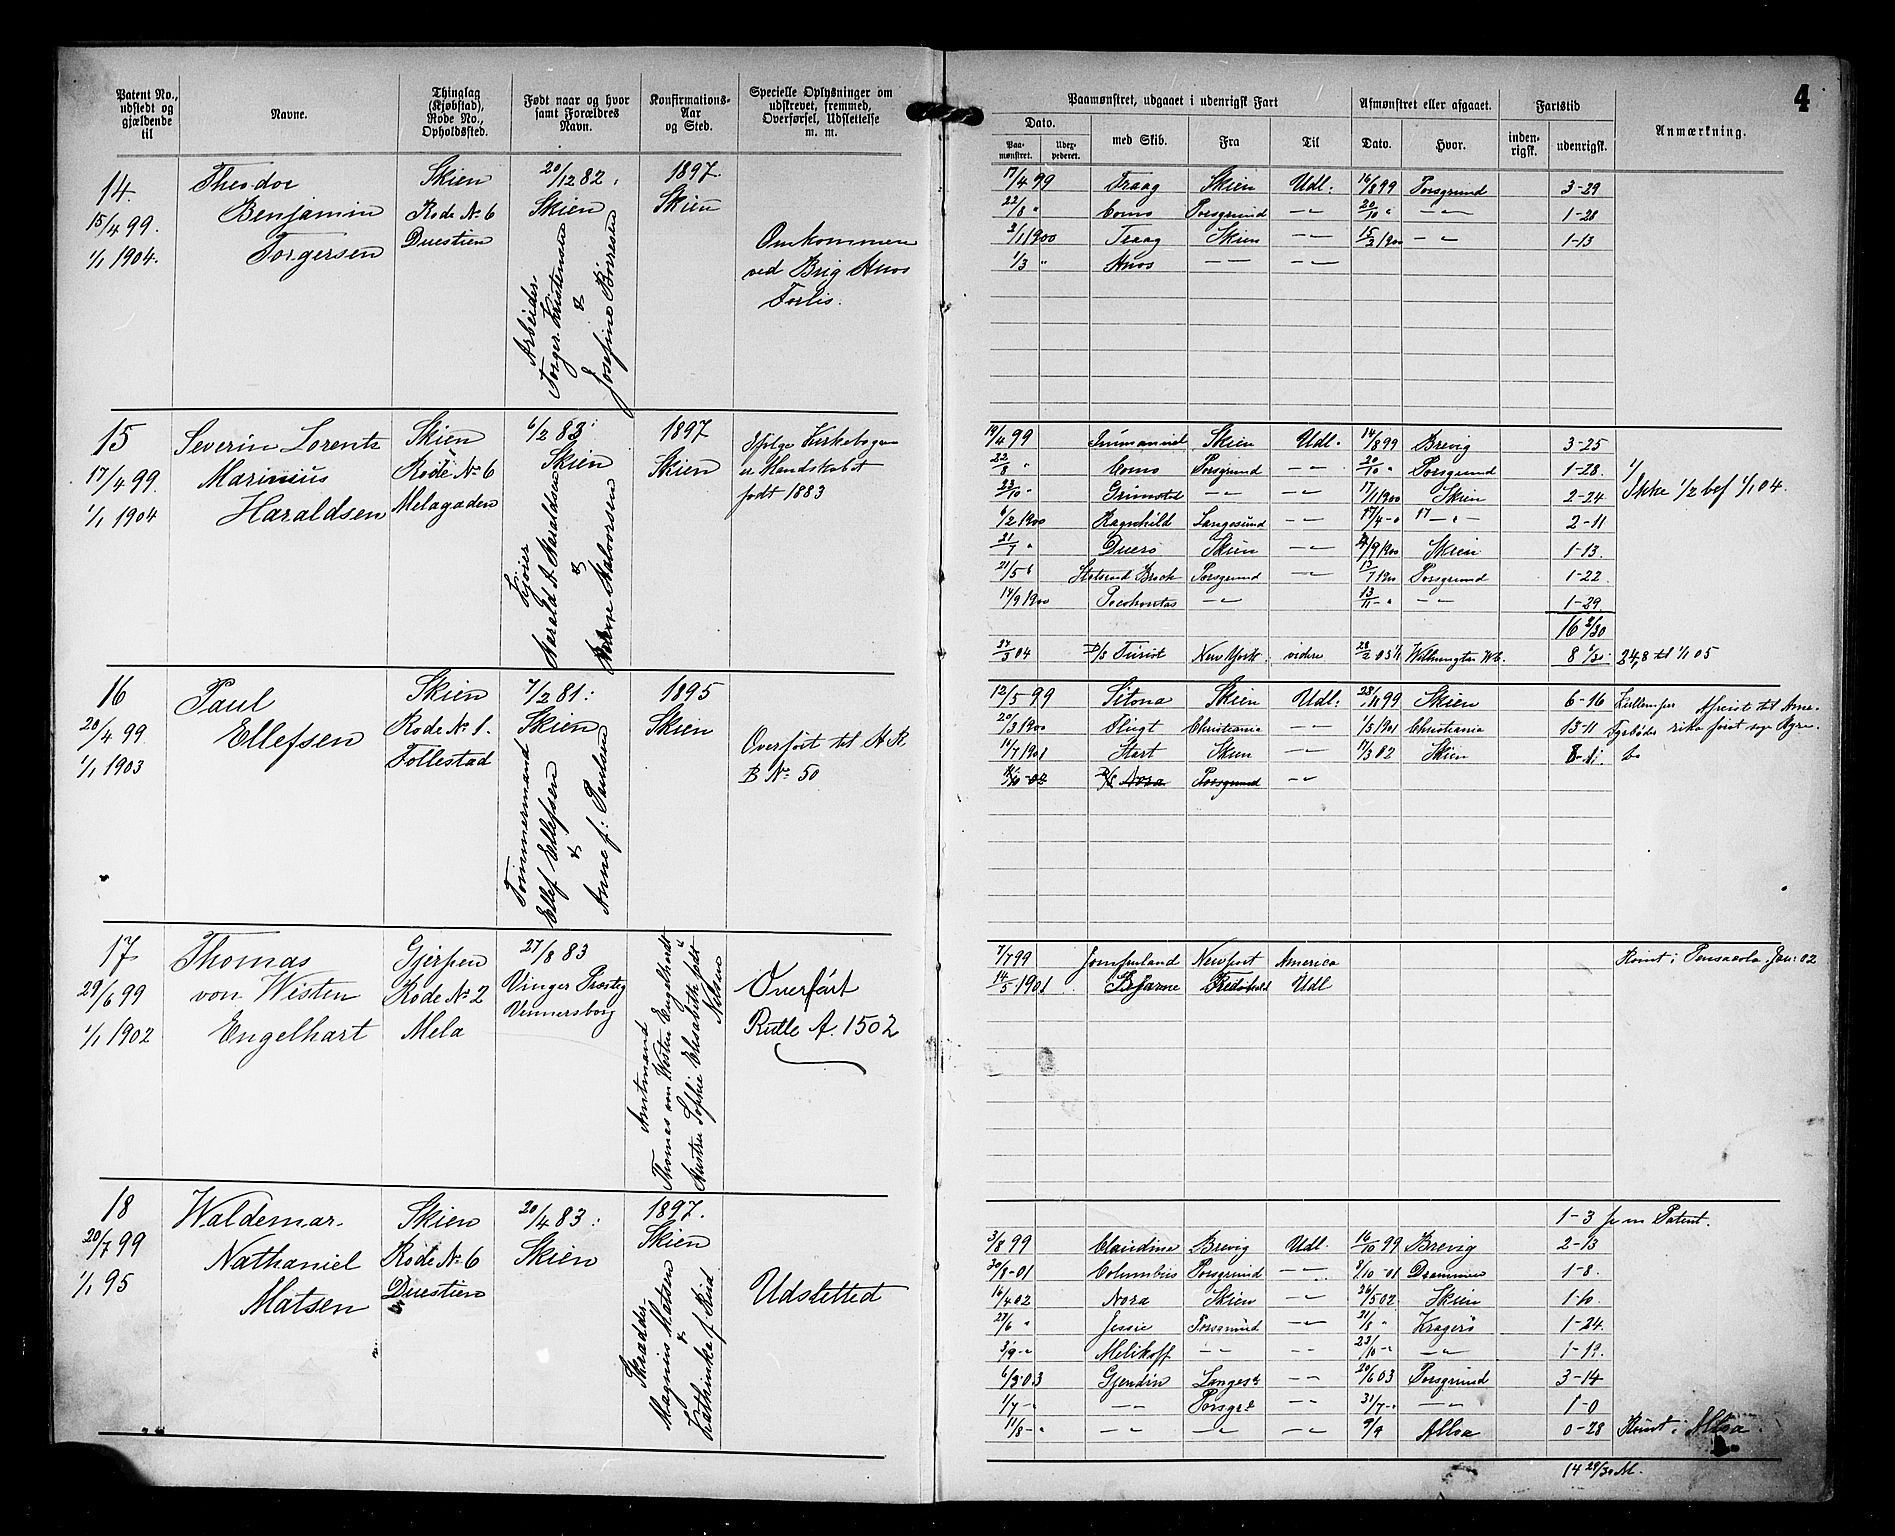 4
Patent No., udstedt og gjældende til
Navne.
Thinglag (Kjøbstad), Rode No., Opholdssted.
Født naar og hvor samt Forældres Navn.
Konfirmations-Aar og Sted.
Specielle Oplysninger om udskrevet, fremmed, Overførsel, Udslettelse m. m.
Paamønstret, udgaaet i udenrigsk Fart
Afmønstret eller afgaaet.
Fartstid
Anmærkning.
Dato.
med Skib.
Fra
Til
Dato.
Hvor.
inden-rigsk.
udenrigsk.
Paa-mønstret.
Udex-pederet.
14.
15/4 99.
1/1 1904.
Theodor
Benjamin
Torgersen
Skien
Rode No 6
Duestien
20/12 82.
Skien
Arbeider
Torger Kristensen
&
Josefine Börresen
1897.
Skien
Omkommen
ved Brig Huos
Forlis.
17/4 99 Traag Skien Udl. 16/8 99 Porsgrund 3-29
22/8 " Como Porsgrund -"- 20/10 " -"- 1-28
2/1 1900 Traag Skien -"- 15/3 1900 -"- 1-13
1/3 " Huos -"- -"-
15
17/4 99.
1/1 1904
Severin Lorents
Marinius
Haraldsen
Skien
Rode No 6
Melagaden
6/2 83
Skien
Harald A Haraldsen
&
Halvorsen
1897
Skien
Ifølge Kirkebogen
er Mandskabet
født 1883
19/4 99 Immanuel Skien Udl. 14/8 99 Brevig 3-25
22/8 " Como Porsgrund -"- 20/10 " Porsgrund 1-28.
23/10 " Grimstad -"- -"- 17/1 1900 Skien 2-24
6/2 1900 Ragnhild Langesund -"- 17/4 -"- 2-11
21/7 " Duerö Skien -"- 4/9 1900 Skien 1-13.
21/5 " Statsraad Brock Porsgrund -"- 13/7 1900 Porsgrund 1-22
14/9 1900 Pocahontas -"- 13/11 -" -"- 1-29.
16 2/30
27/3 04 D/S Turist New York. videre Wilmington 8 1/30. 24,8 til 1/1 05
Ikke 1/2 bef 1/1 04.
16
20/4 99
1/1 1903
Paul
Ellefsen
Skien
Rode No 1.
Follestad
7/2 81.
Skien
Tømmermand
Ellef Ellefsen
&
Anne f: Paulsen
1895
Skien
Overført til H R
B No 50
12/5 99 Sitona Skien Udl. 28/11 99 Skien 6-16
20/3 1900 Christiania 1/5 1901 Christiania 13-11 Fyrbøder
11/7 1901 Start Skien 11/3 02 Skien 8-1. Do
D/S Nora Porsgrund -"-
17
29/6 99
1/1 1902
Thomas
von Westen
Engelhart
Gjerpen
Rode No 2
Mela
27/8 83
Vinger Prestg
Vinnersborg
Amtmand
Thomas von Westen Engelhardt
Hustru Sophie Elisabeth født
Nilsen
Overført
Rulle A. 1502
7/7 99 Jomfruland Newport America Romt i Pensacola Jan: 02
14/5 1901 Bjarne Fredrikshald Udl
18
20/7 99
1/1 95
Waldemar
Nathaniel
Matsen
Skien
Rode No 6
Duestien
20/4 83.
Skien
1897.
Skien
Skrædder
Magnus Matsen
&
Kathinka f. Skid
Udslettet
1-3 Patent.
3/8 99 Claudine Brevig Udl. 16/10 99 Brevig 2-13
30/8-01 Columbus Porsgrund -"- 8/10-01 Drammen 1-8.
16/4 02 Nora Skien -"- 26/5 02 Skien 1-10.
27/6 " Jessie Porsgrund -"- 21/8 " Kragerö 1-24.
3/9 -" Melikoff -"- -"- 23/10 -" -"- 1-19.
6/3 03 Gjendin Langesd -"- 20/6 03 Porsgrund 3-14
1/7 -" -"- Porsgrd 31/7 -" -"- 1-0
11/8 -" -"- -"- -"- 9/9 Alloa 0-28 Romt i Alloa.
14 29/30 M.